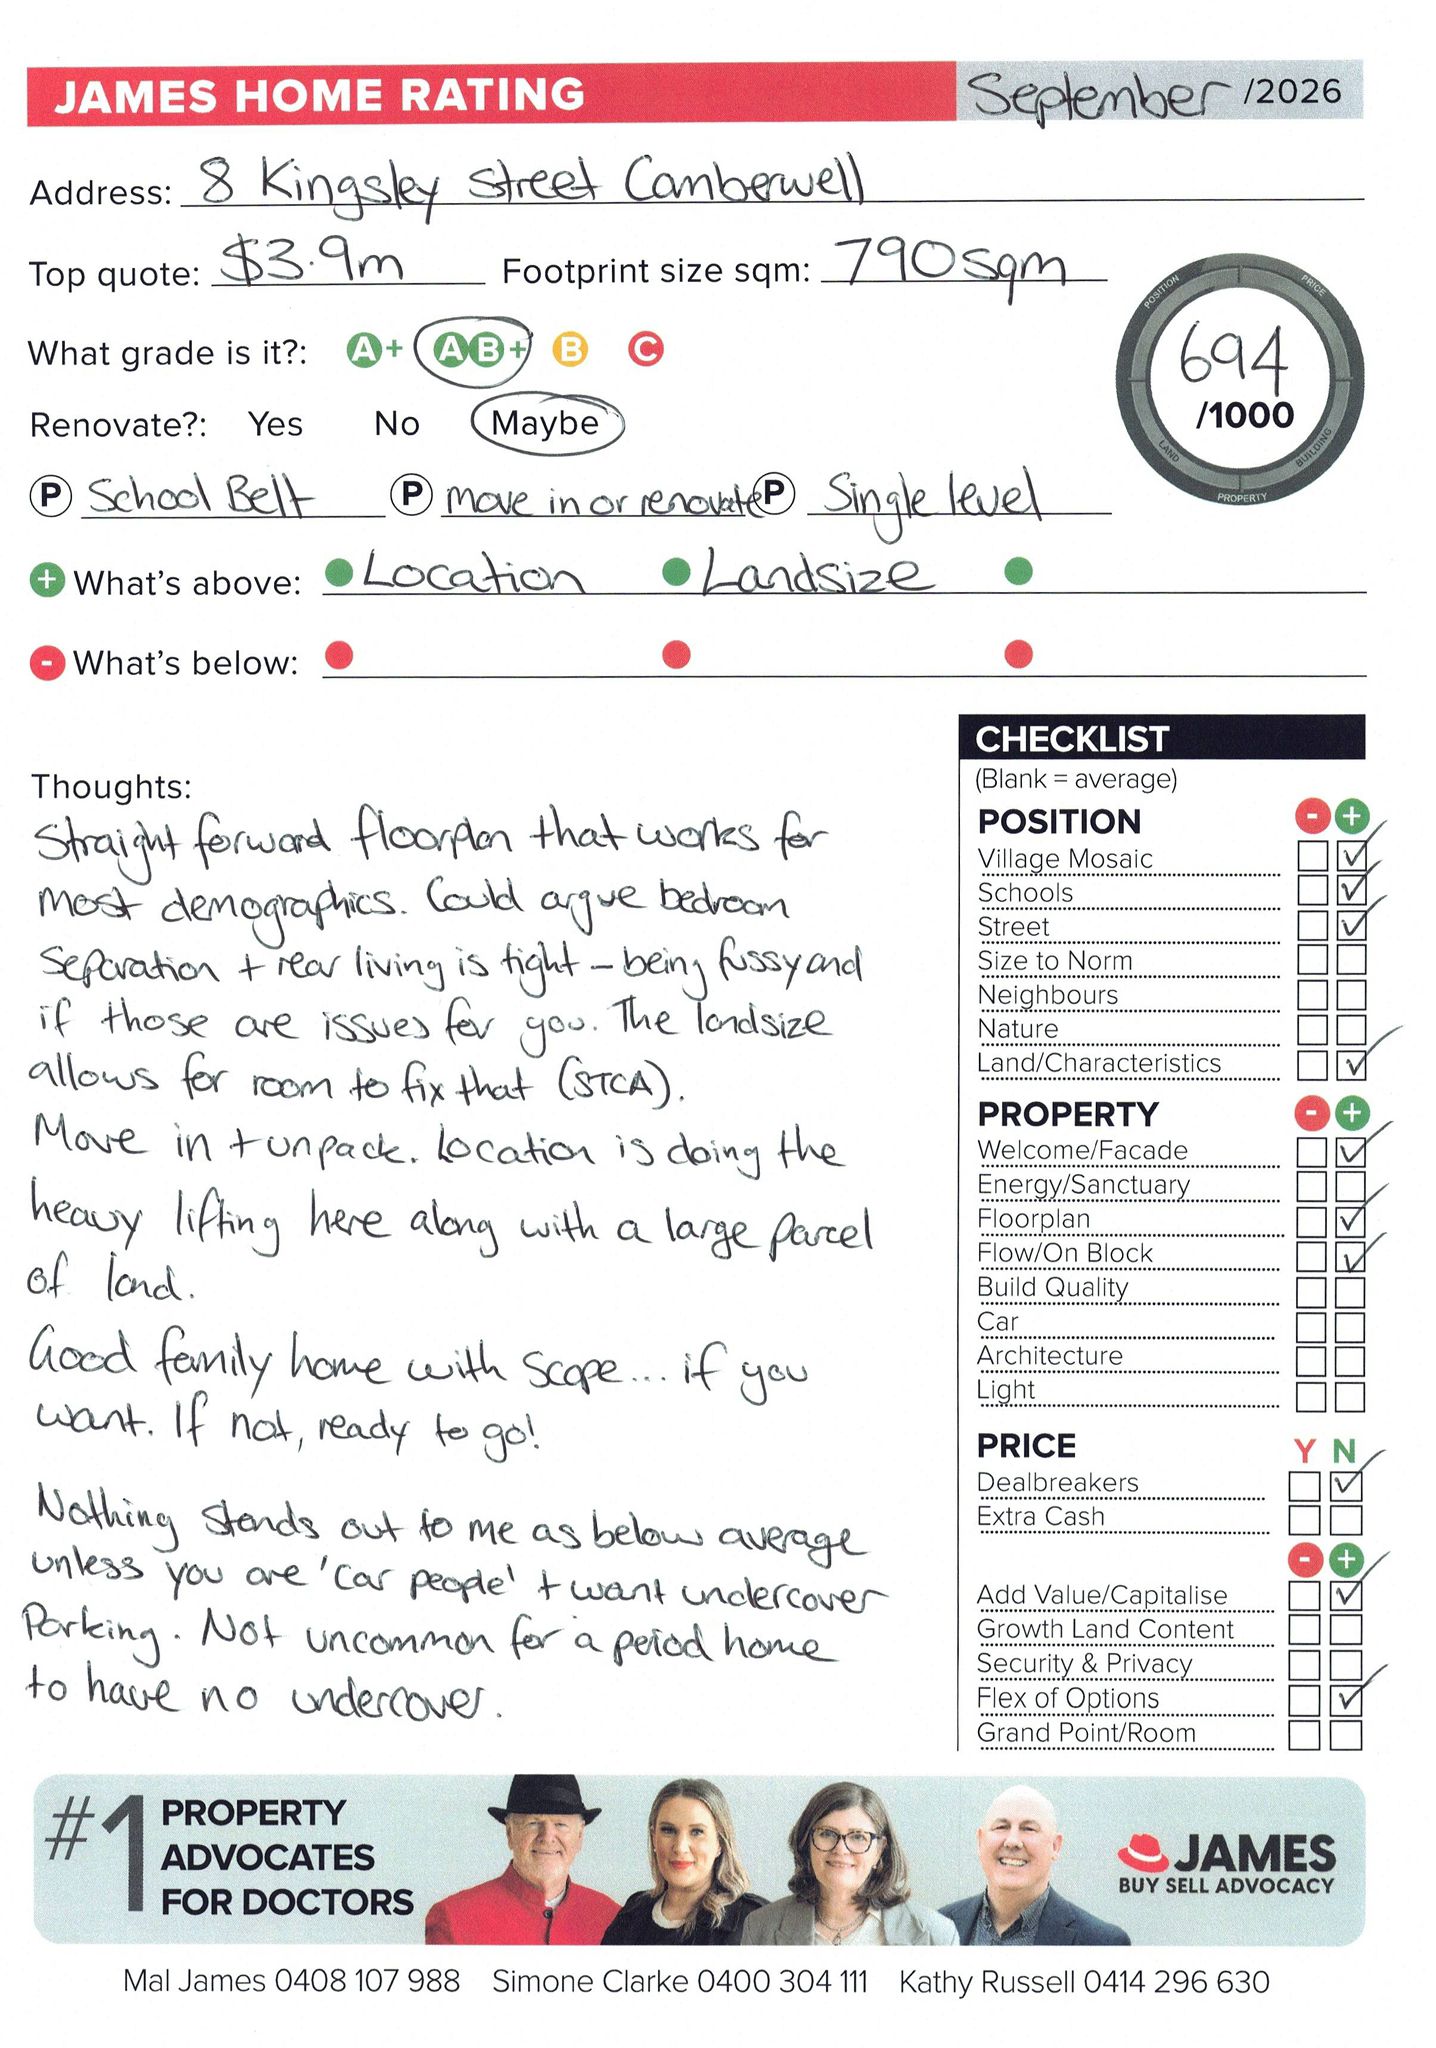 JAMES HOME RATING
September /2026
Address: 8 Kingsley Street Camberwell
Top quote: $3.9m Footprint size sqm: 790sqm
POSITION PRICE BUILDING PROPERTY LAND
694
/1000
What grade is it?: A+ AB+ B C
Renovate?: Yes No Maybe
P School Belt P move in or renovate P Single level
+ What's above: Location Landsize
- What's below:
Thoughts:
Straight forward floorplan that works for
most demographics. Could argue bedroom
separation + rear living is tight - being fussy and
if those are issues for you. The landsize
allows for room to fix that (STCA).
Move in + unpack. Location is doing the
heavy lifting here along with a large parcel
of land.
Good family home with scope... if you
want. If not, ready to go!
Nothing stands out to me as below average
unless you are 'car people' + want undercover
Parking. Not uncommon for a period home
to have no undercover.
CHECKLIST
(Blank = average)
POSITION - +
Village Mosaic
Schools
Street
Size to Norm
Neighbours
Nature
Land/Characteristics
PROPERTY - +
Welcome/Facade
Energy/Sanctuary
Floorplan
Flow/On Block
Build Quality
Car
Architecture
Light
PRICE Y N
Dealbreakers
Extra Cash
- +
Add Value/Capitalise
Growth Land Content
Security & Privacy
Flex of Options
Grand Point/Room
#1 PROPERTY
ADVOCATES
FOR DOCTORS
JAMES
BUY SELL ADVOCACY
Mal James 0408 107 988 Simone Clarke 0400 304 111 Kathy Russell 0414 296 630